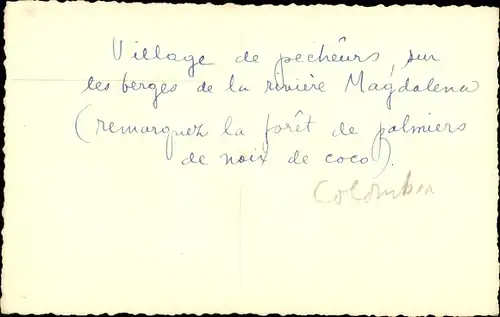 Village de pecheûrs, sur
les berges de la rivière Magdalena
(remarquez la forêt de palmiers
de noix de coco).
Colombia